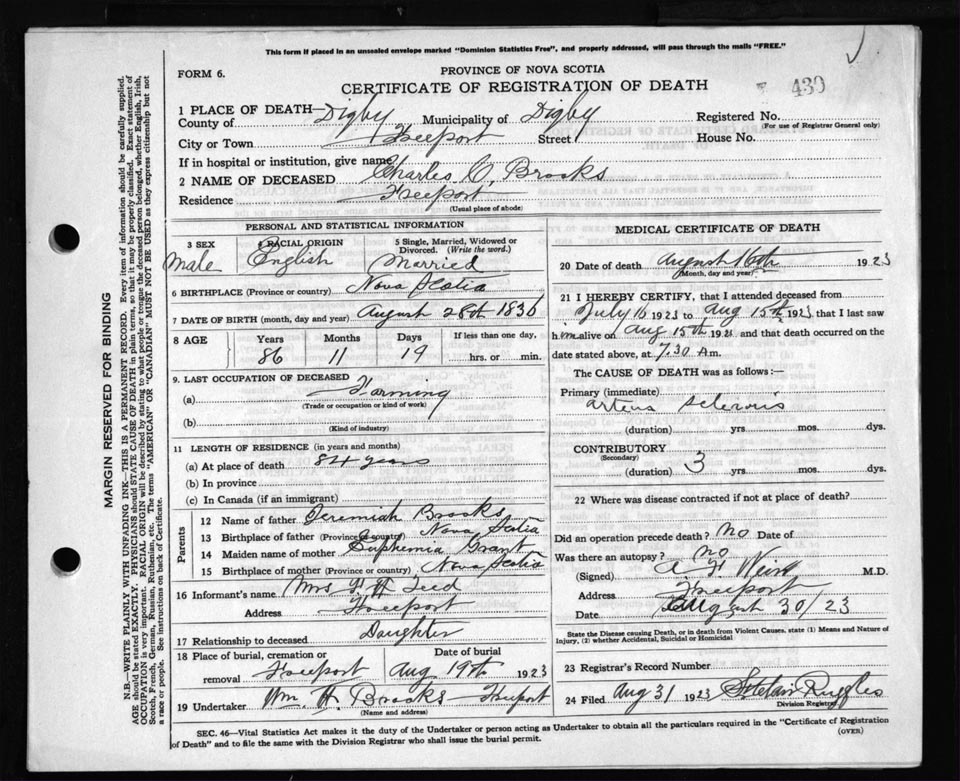 This form if placed in an unsealed envelope marked "Dominion Statistics Free", and properly addressed, will pass through the mails "FREE."
FORM 6.
PROVINCE OF NOVA SCOTIA
CERTIFICATE OF REGISTRATION OF DEATH
430
1 PLACE OF DEATH—
County of Digby Municipality of Digby Registered No.
(For use of Registrar General only)
City or Town Freeport Street House No.
If in hospital or institution, give name
2 NAME OF DECEASED Charles O. Brooks
Residence Freeport
(Usual place of abode)
PERSONAL AND STATISTICAL INFORMATION
3 SEX 4 RACIAL ORIGIN 5 Single, Married, Widowed or Divorced. (Write the word.)
Male English Married
6 BIRTHPLACE (Province or country) Nova Scotia
7 DATE OF BIRTH (month, day and year) August 28th 1836
8 AGE Years Months Days If less than one day,
86 11 19 hrs. or min.
9. LAST OCCUPATION OF DECEASED
(a) Farming
(Trade or occupation or kind of work)
(b)
(Kind of industry)
11 LENGTH OF RESIDENCE (in years and months)
(a) At place of death 84 years
(b) In province
(c) In Canada (if an immigrant)
Parents
12 Name of father Jeremiah Brooks
13 Birthplace of father (Province or country) Nova Scotia
14 Maiden name of mother Euphemia Grant
15 Birthplace of mother (Province or country) Nova Scotia
16 Informant's name Mrs H. Teed
Address Freeport
17 Relationship to deceased Daughter
18 Place of burial, cremation or removal Date of burial
Freeport Aug 19th 1923
19 Undertaker Wm. H. Brooks Freeport
(Name and address)
MEDICAL CERTIFICATE OF DEATH
20 Date of death August 16th 1923
(Month, day and year)
21 I HEREBY CERTIFY, that I attended deceased from
July 16 1923 to Aug 15th 1923 that I last saw
him alive on Aug 15th 1923 and that death occurred on the
date stated above, at 7.30 Am.
The CAUSE OF DEATH was as follows:—
Primary (immediate)
Arterio Sclerosis
(duration) yrs. mos. dys.
CONTRIBUTORY
(Secondary)
(duration) 3 yrs. mos. dys.
22 Where was disease contracted if not at place of death?
Did an operation precede death? No Date of
Was there an autopsy? No
(Signed) A H Weir M.D.
Address Freeport
Date August 30/23
State the Disease causing Death, or in death from Violent Causes, state (1) Means and Nature of
Injury, (2) whether Accidental, Suicidal or Homicidal
23 Registrar's Record Number
24 Filed Aug 31 1923 Ruggles
Division Registrar
SEC. 46—Vital Statistics Act makes it the duty of the Undertaker or person acting as Undertaker to obtain all the particulars required in the "Certificate of Registration
of Death" and to file the same with the Division Registrar who shall issue the burial permit.
(OVER)
MARGIN RESERVED FOR BINDING
N.B.—WRITE PLAINLY WITH UNFADING INK—THIS IS A PERMANENT RECORD. Every item of information should be carefully supplied.
AGE should be stated EXACTLY. PHYSICIANS should STATE CAUSE OF DEATH in plain terms, so that it may be properly classified. Exact statement of
OCCUPATION is very important. RACIAL ORIGIN will be described by stating to what people or tongue the deceased person belonged, whether English, Irish,
Scotch, French, German, Russian, Ruthenian, etc. The terms "AMERICAN" or "CANADIAN" MUST NOT BE USED as they express citizenship but not
a race or people. See instructions on back of Certificate.